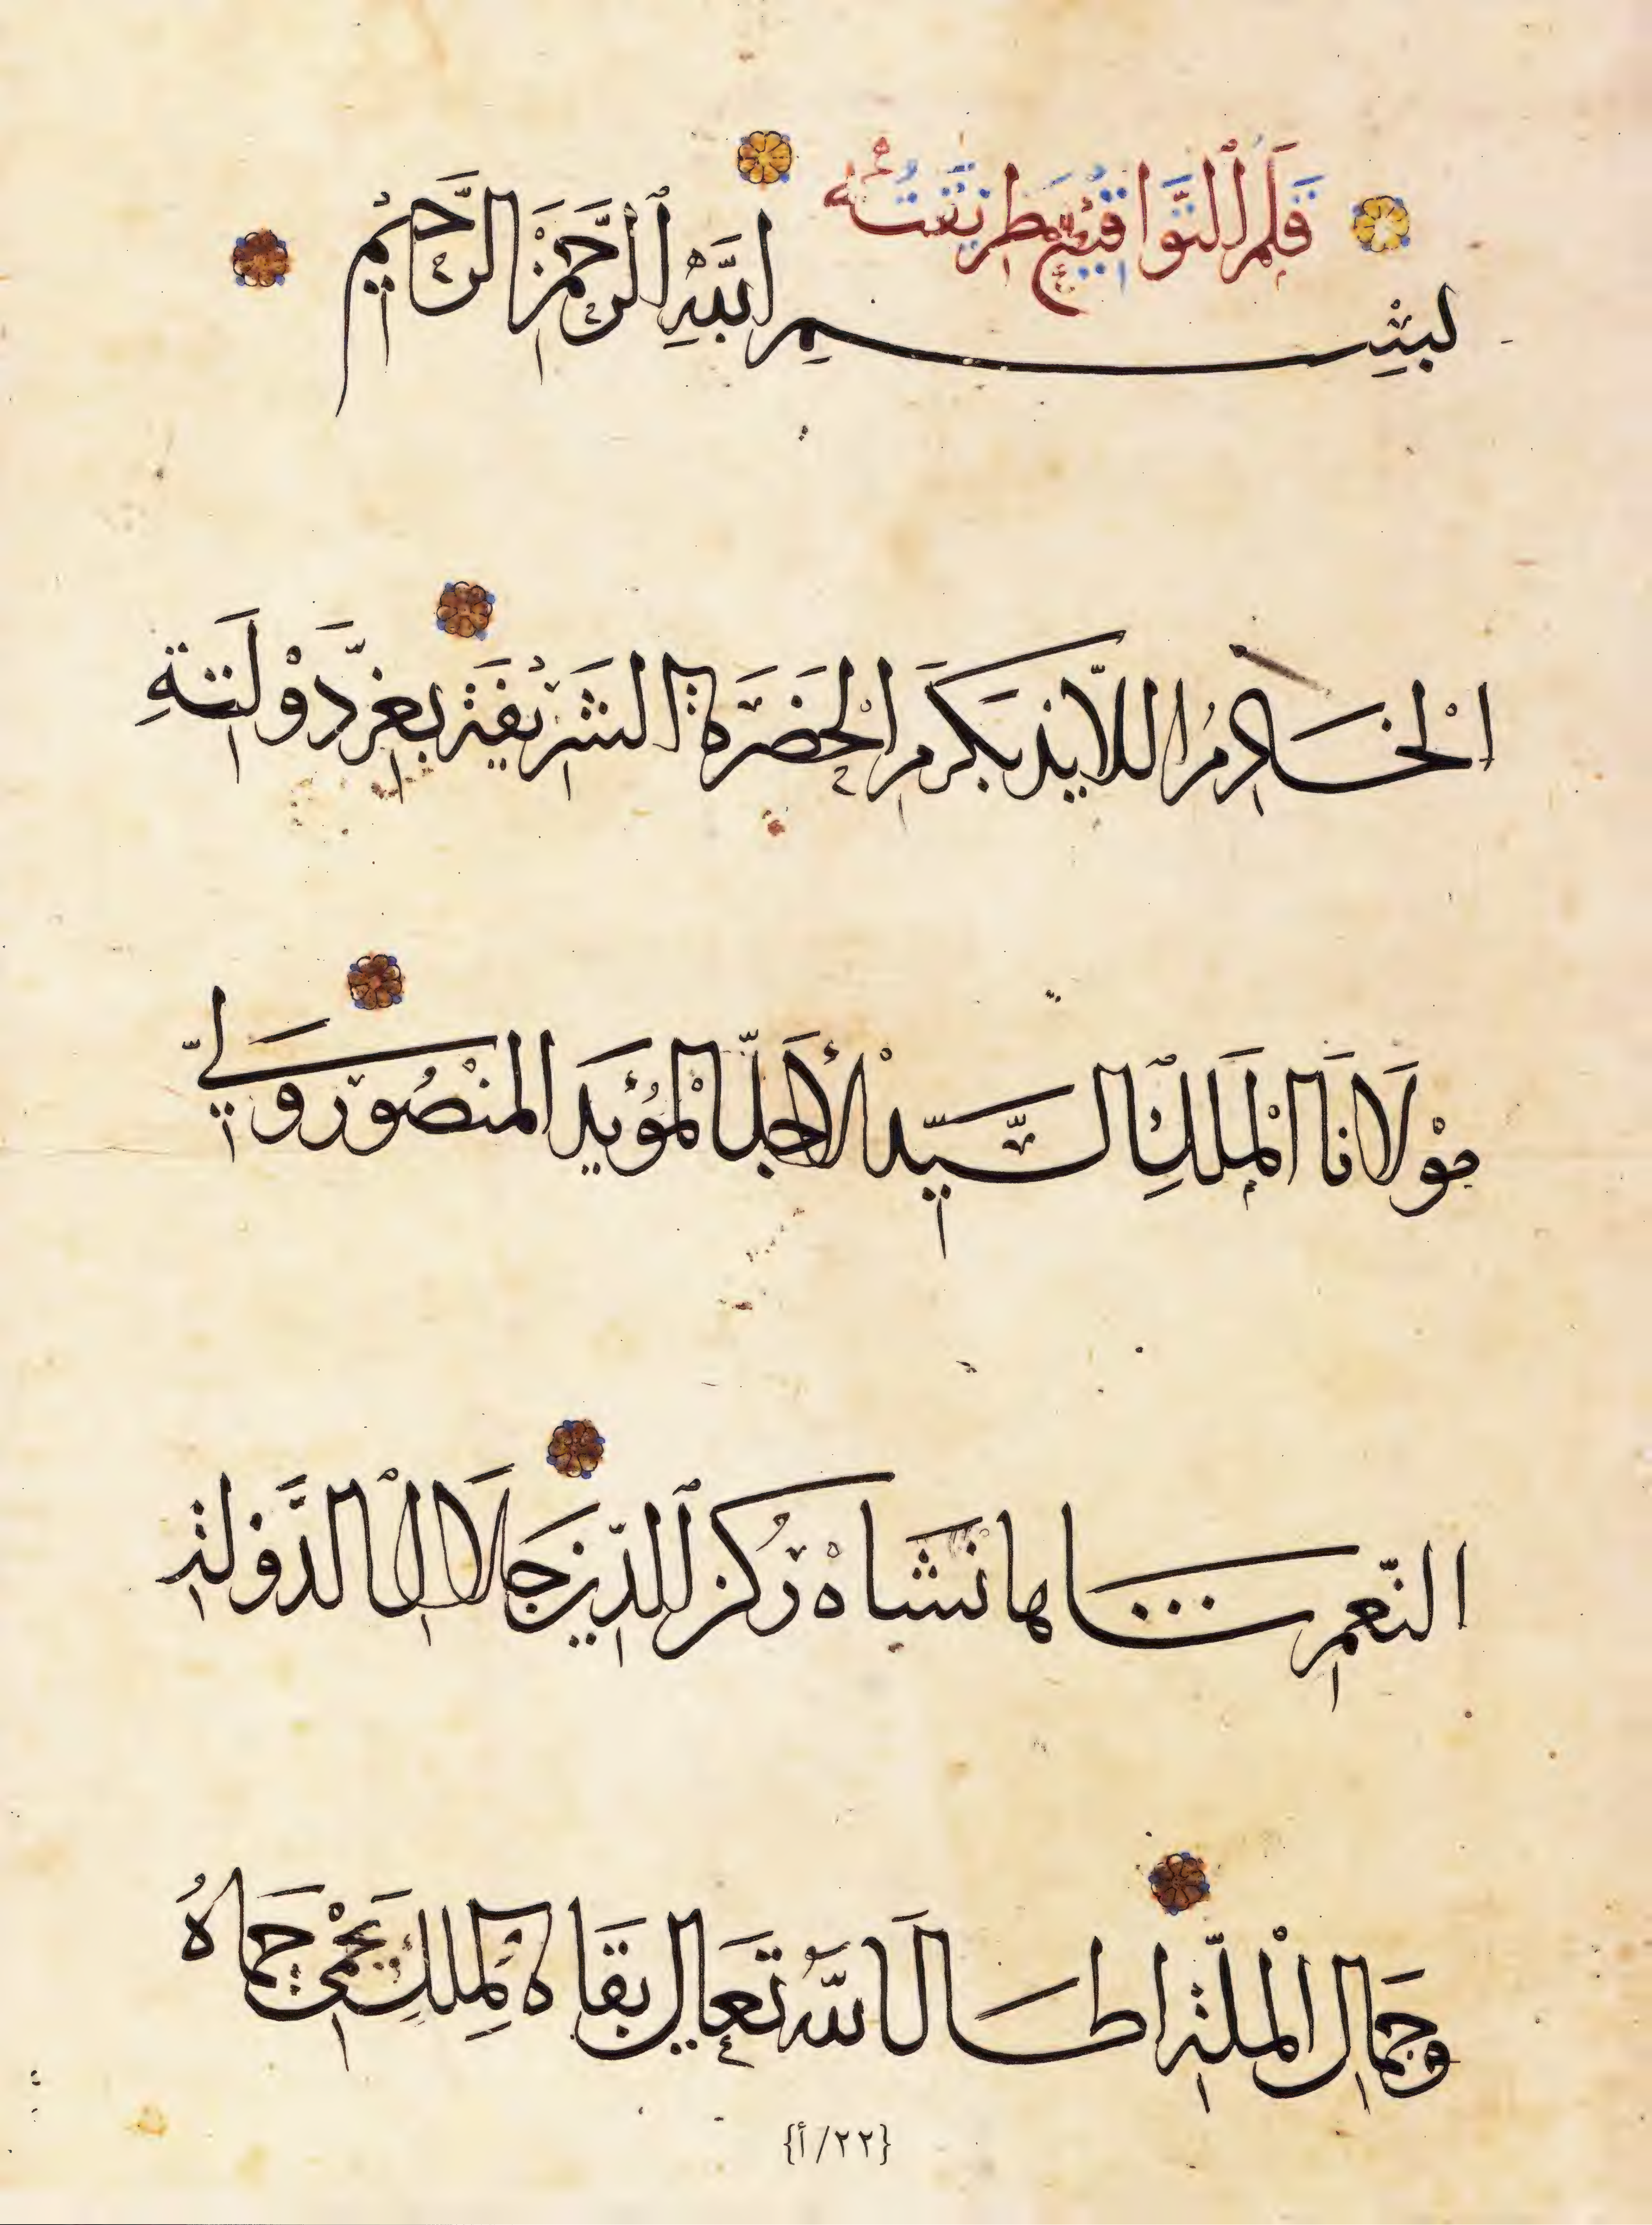 قَلَمُ التَّوَاقِيعِ طَرِيقَتُهُ
بِسْمِ اللَّهِ الرَّحْمَنِ الرَّحِيمِ
الْخَادِمُ اللَّائِذُ بِكَرَمِ الْحَضْرَةِ الشَّرِيفَةِ بِعِزِّ دَوْلَتِهِ
مَوْلَانَا الْمَلِكِ السَّيِّدِ الْأَجَلِّ الْمُؤَيَّدِ الْمَنْصُورِ وَلِيِّ
النِّعَمِ شاهانشاه رُكْنِ الدِّينِ جَلَالِ الدَّوْلَةِ
وَجَمَالِ الْمِلَّةِ اطال اللَّهُ تَعَالَى بَقَاهُ لِمُلْكٍ يَحْمِي حِمَاهُ
{٢٢/أ}